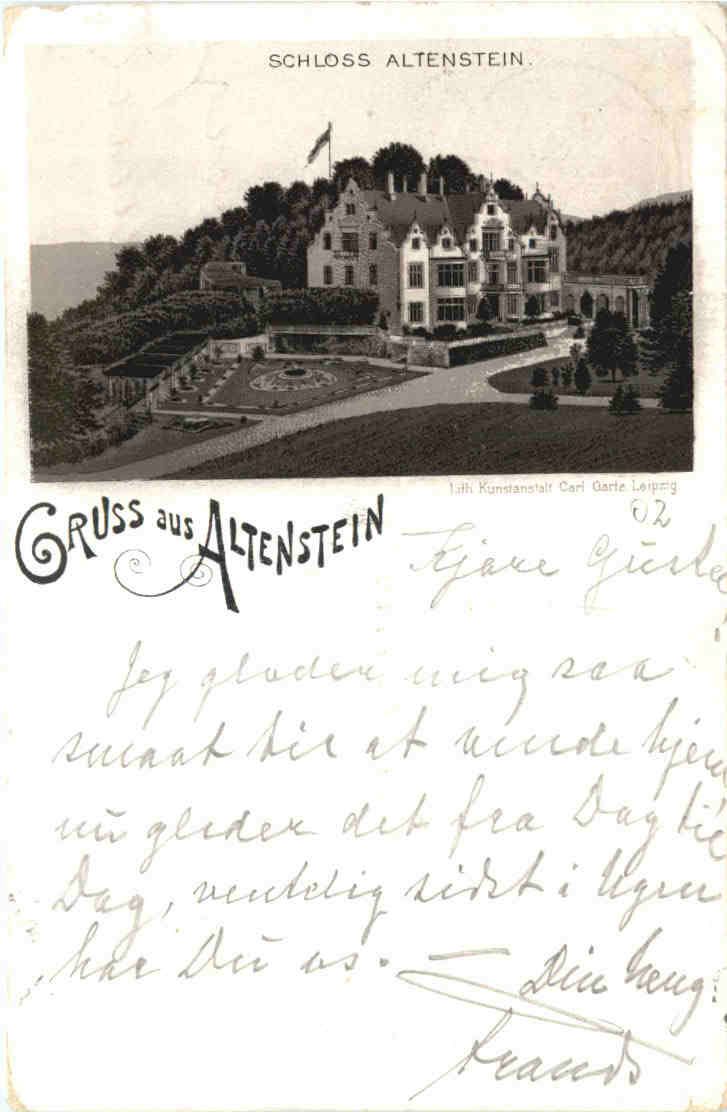 SCHLOSS ALTENSTEIN.
Lith. Kunstanstalt Carl Garte, Leipzig
GRUSS aus ALTENSTEIN
02
Kjære
Jeg glæder mig saa
smaat til at vende hjem
nu glider det fra Dag til
Dag, ventelig sidst i Ugen
har Du os. — Din heng.